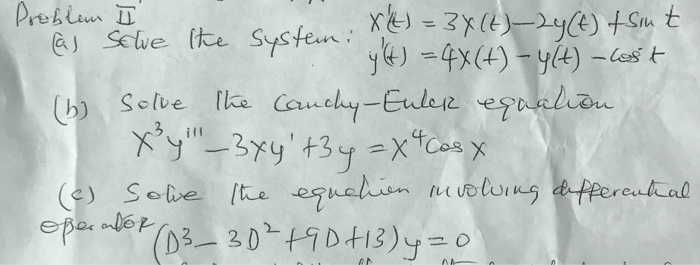 Problem II x'(t) = 3x(t) - 2y(t) + Sin t
(a) Solve the system: y'(t) = 4x(t) - y(t) - cos t
(b) Solve the Cauchy-Euler equation
x³y''' - 3xy' + 3y = x⁴cos x
(c) Solve the equation involving differential
operator (D³ - 3D² + 9D + 13)y = 0